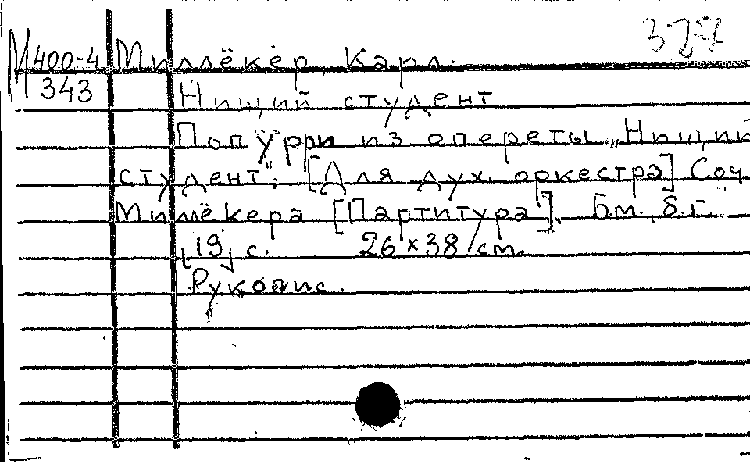 377
М400-4 Миллёкер, Карл.
343 Нищий студент
Попурри из опереты „Нищий
студент". [Для дух. оркестра] Соч.
Миллёкера [Партитура]. Б.м. б.г.
[19] с. 26×38 см.
Рукопис.